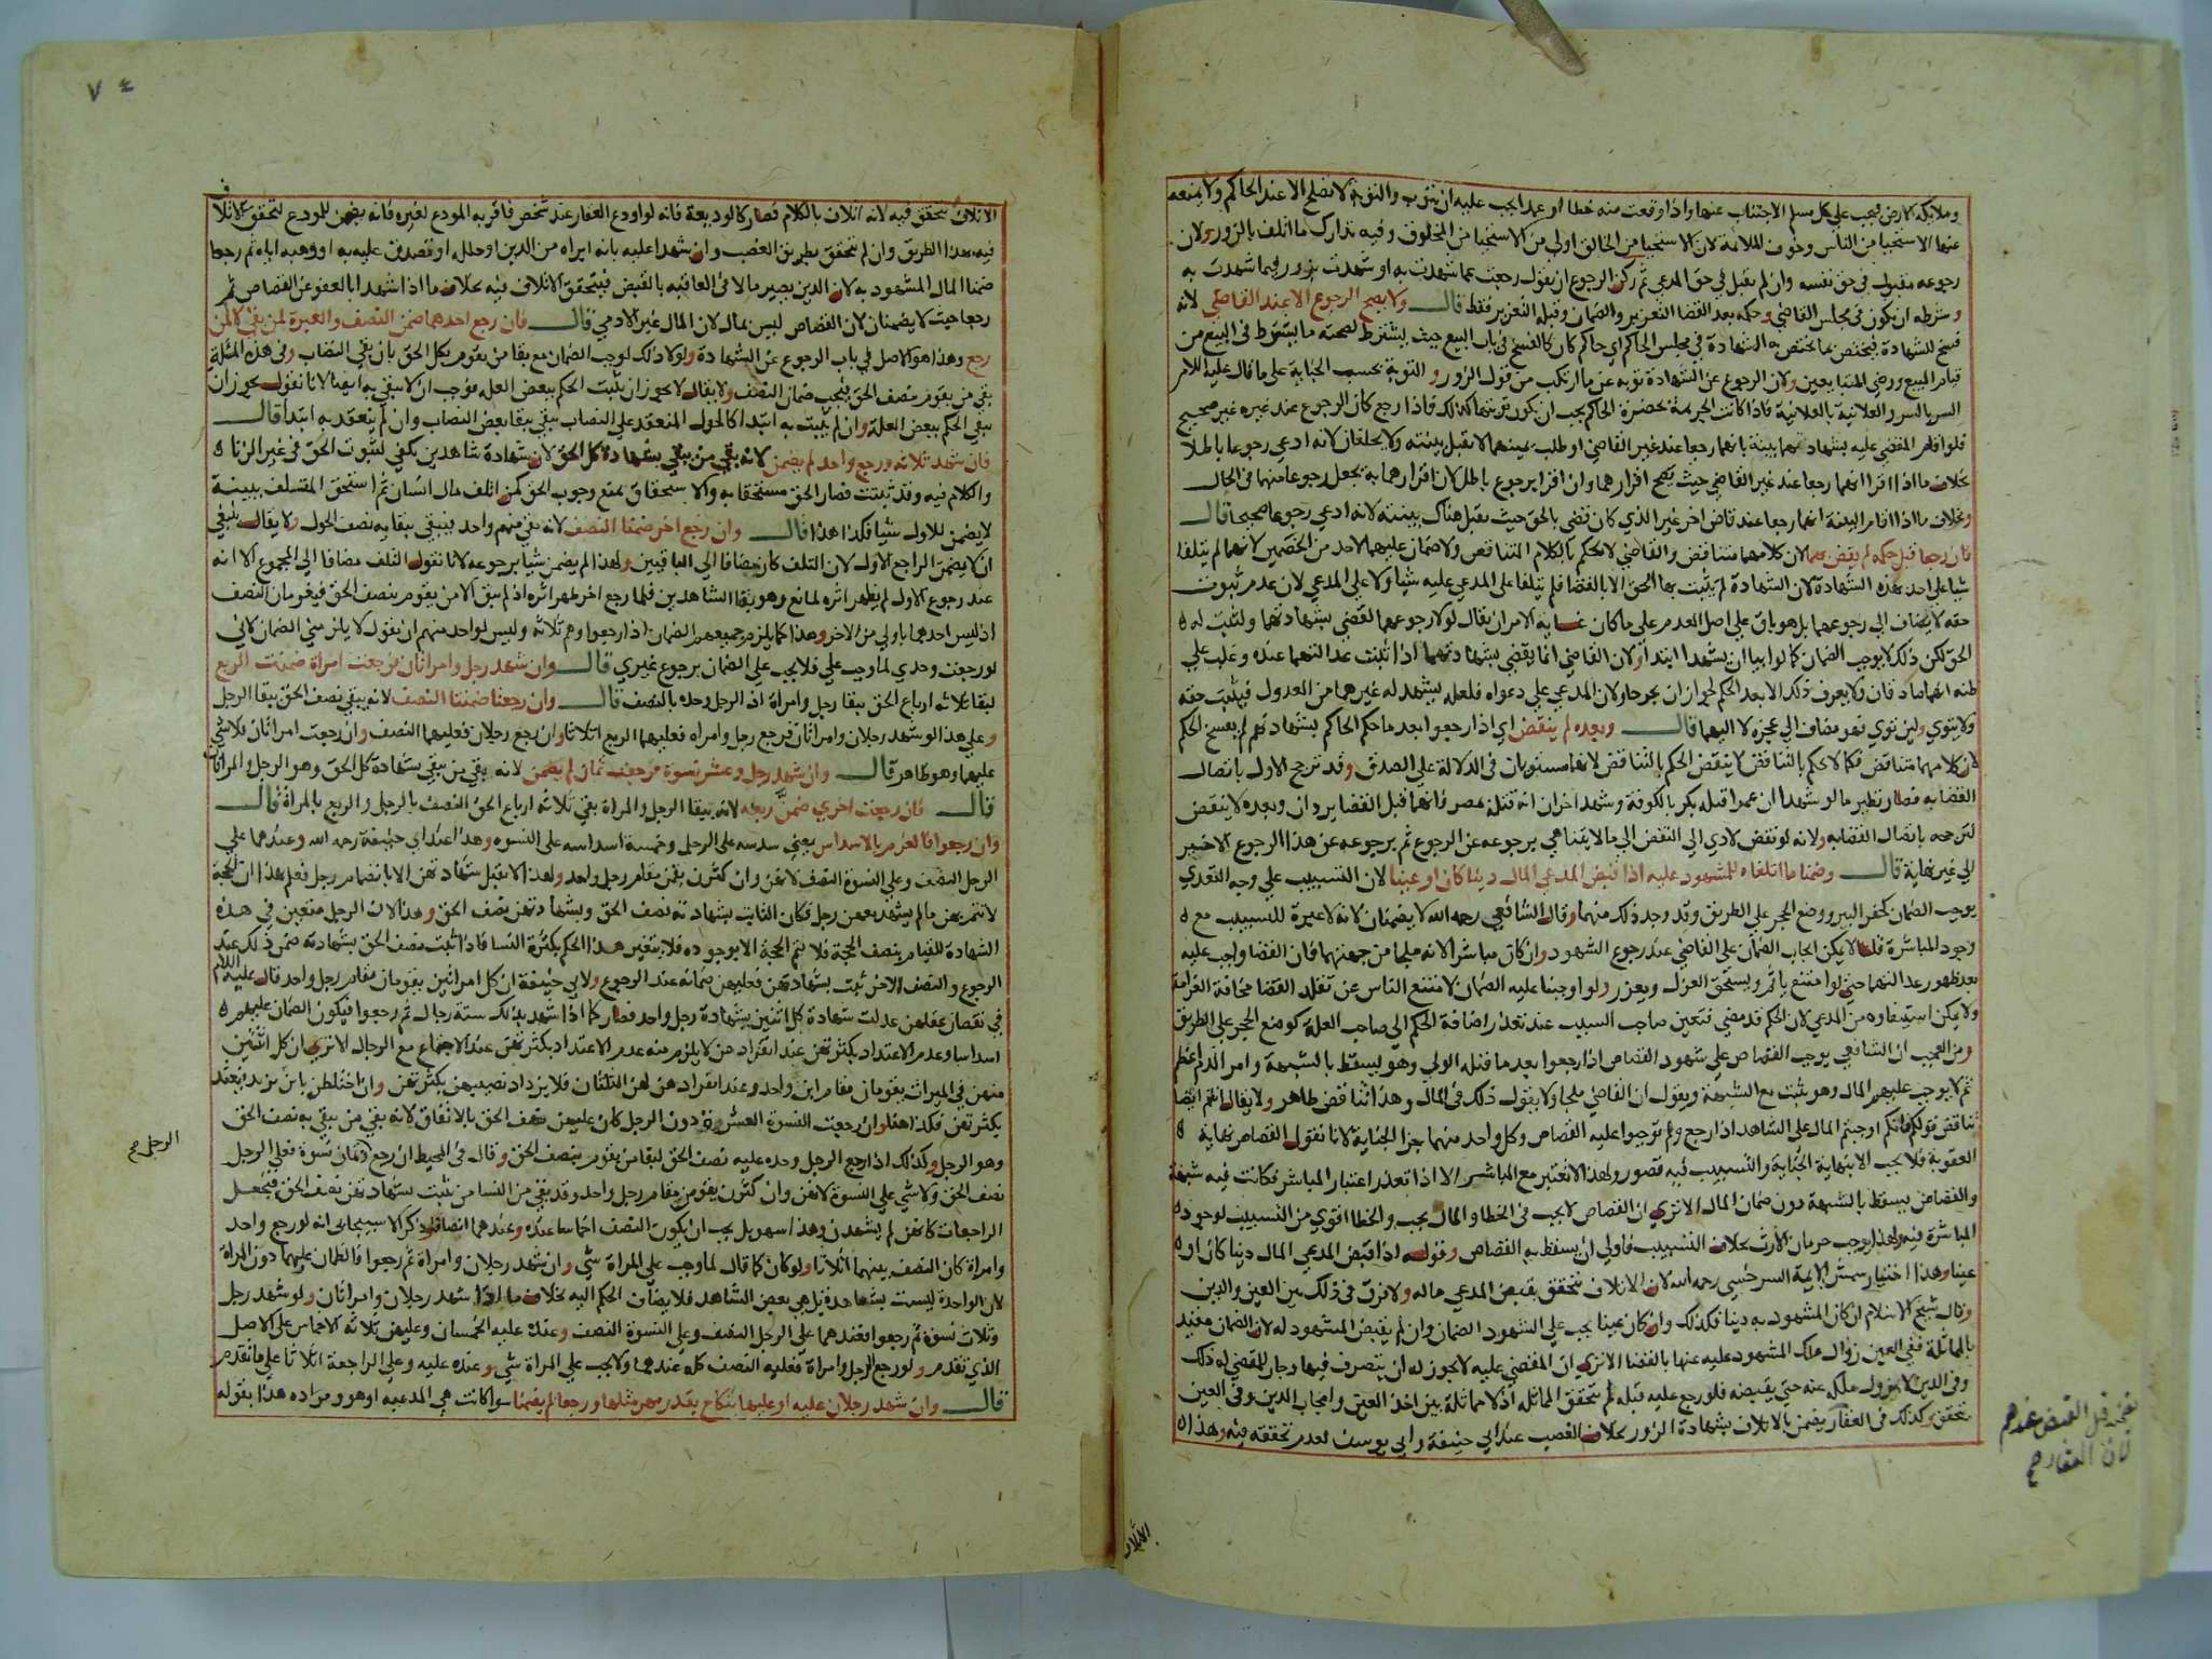 وملابكه الارض فيجب على كل مسلم الاجتناب عنها واذا وقعت منه خطا او عمدا يجب عليه ان يتوب والتوبة لا تصلح الا عند الحاكم ولا يمنعه
عنها الاستحيا من الناس وخوف الملامة لان الاستحيا من الخالق اولى من الاستحيا من المخلوق وفيه تدارك ما اتلف بالزور ولان
رجوعه مقبول في حق نفسه وان لم يقبل في حق المدعي ثم ركن الرجوع ان يقول رجعت عما شهدت به او شهدت بزور فيما شهدت به
وشرطه ان يكون في مجلس القاضي وحكمه بعد القضا التعزير والضمان وقبله التعزير فقط قال ولا يصح الرجوع الا عند القاضي لانه
فسخ للشهادة فيختص بما يختص به الشهادة في مجلس الحاكم اي حاكم كان كالفسخ في باب البيع حيث يشترط لصحته ما يشترط في البيع من
قيام المبيع ورضى المتبايعين ولان الرجوع عن الشهادة توبة عن ما ارتكب من قول الزور والتوبة بحسب الجناية على ما قال عليه السلام
السر بالسر والعلانية بالعلانية فاذا كانت الجريمة بحضرة الحاكم يجب ان يكون توبتها كذلك فاذا رجع كان الرجوع عند غيره غير صحيح
فلو اقام المقضي عليه بشهادتهما بينة بانهما رجعا عند غير القاضي او طلب يمينهما لا يقبل بينته ولا يحلفان لانه ادعى رجوعا باطلا
بخلاف ما اذا اقرا انهما رجعا عند غير القاضي حيث يصح اقرارهما وان اقرا برجوع باطل لان اقرارهما به يجعل رجوعا منهما في الحال
وبخلاف ما اذا اقام البينة انهما رجعا عند قاض اخر غير الذي كان قضى بالحق حيث يقبل هناك بينته لانه ادعى رجوعا صحيحا قال
فان رجعا قبل حكمه لم يقض بهما لان كلامهما متناقض والقاضي لا يحكم بالكلام المتناقض ولا ضمان عليهما لاحد من الخصمين لانهما لم يتلفا
شيا على احد بهذه الشهادة لان الشهادة لم يثبت بها الحق الا بالقضا فلم يتلفا على المدعى عليه شيا ولا على المدعي لان عدم ثبوت
حقه لا يضاف الى رجوعهما بل هو باق على اصل العدم على ما كان غاية الامر ان يقال لولا رجوعهما لقضى بشهادتهما ولثبت له
الحق لكن ذلك لا يوجب الضمان كما لو ابيا ان يشهدا ابتدا ولان القاضي انما يقضي بشهادتهما اذا ثبتت عدالتهما عنده وغلب على
ظنه انهما صادقان ولا يعرف ذلك الا بعد الحكم لجواز ان يجرحا ولان المدعي على دعواه فلعله يشهد له غيرهما من العدول فيثبت حقه
ولا يتوي ولين توي فهو مضاف الى عجزه لا اليهما قال وبعده لم ينقض اي اذا رجعوا بعد ما حكم الحاكم بشهادتهم لم يفسخ الحكم
لان كلامهما متناقض فكما لا يحكم بالتناقض لا ينقض الحكم بالتناقض لانهما مستويان في الدلالة على الصدق وقد ترجح الاول باتصال
القضا به فصار نظير ما لو شهدا ان عمرا قتله بكر بالكوفة وشهد اخران انه قتله بمصر فانهما قبل القضا يردان وبعده لا ينقض
لترجحه باتصال القضا به ولانه لو نقض لادى الى النقض الى ما لا يتناهى برجوعه عن الرجوع ثم برجوعه عن هذا الرجوع الاخير
الى غير نهاية قال وضمنا ما اتلفاه للمشهود عليه اذا قبض المدعي المال دينا كان او عينا لان التسبيب على وجه التعدي
يوجب الضمان كحفر البير ووضع الحجر على الطريق وقد وجد ذلك منهما وقال الشافعي رحمه الله لا يضمنان لانه لا عبرة للتسبيب مع
وجود المباشرة قلنا لا يمكن ايجاب الضمان على القاضي عند رجوع الشهود وان كان مباشرا لانه ملجا من جهتهما فان القضا واجب عليه
بعد ظهور عدالتهما حتى لو امتنع ياثم ويستحق العزل ويعزر ولو اوجبنا عليه الضمان لامتنع الناس عن تقلد القضا مخافة الغرامة
ولا يمكن استيفاوه من المدعي لان الحكم قد مضى فتعين صاحب السبب عند تعذر اضافة الحكم الى صاحب العلة كوضع الحجر على الطريق
ومن العجب ان الشافعي يوجب القصاص على شهود القصاص اذا رجعوا بعد ما قتله الولي وهو يسقط بالشبهة وامر الدم اعظم
ثم لا يوجب عليهم المال وهو يثبت مع الشبهة ويقول ان القاضي ملجا ولا يقول ذلك في المال وهذا تناقض ظاهر ولا يقال انتم ايضا
تناقض قولكم فانكم اوجبتم المال على الشاهد اذا رجع ولم توجبوا عليه القصاص وكل واحد منهما جزا الجناية لانا نقول القصاص نهاية
العقوبة فلا يجب الا بنهاية الجناية والتسبيب فيه قصور ولهذا لا تعتبر مع المباشر الا اذا تعذر اعتبار المباشر فكانت فيه شبهة
والقصاص يسقط بالشبهة دون ضمان المال الا ترى ان القصاص لا يجب في الخطا والمال يجب والخطا اقوى من التسبيب لوجود
المباشرة فيه ولهذا يوجب حرمان الارث بخلاف التسبيب فاولى ان يسقط به القصاص وقوله اذا قبض المدعي المال دينا كان او
عينا وهذا اختيار شمس الايمة السرخسي رحمه الله لان الاتلاف يتحقق بقبض المدعي ماله ولا فرق في ذلك بين العين والدين
وقال شيخ الاسلام ان كان المشهود به دينا فكذلك وان كان عينا يجب على الشهود الضمان وان لم يقبض المشهود له لان الضمان مقيد
بالمماثلة ففي العين زوال ملك المشهود عليه عنها بالقضا الا ترى ان المقضي عليه لا يجوز له ان يتصرف فيها وجاز للمقضي له ذلك
وفي الدين لا يزول ملكه عنه حتى يقبضه فلو رجع عليه قبله لم يتحقق المماثلة اذ لا مماثلة بين اخذ العين وايجاب الدين وفي العين
يتحقق وكذلك في العقار يضمن بالاتلاف بشهادة الزور بخلاف الغصب عند ابي حنيفة وابي يوسف لعدم تحققه فيه وهذا
قبل القبض عندهم
لان العقار صح
الاتلاف
٧٤
الاتلاف يتحقق فيه لانه اتلاف بالكلام فصار كالوديعة فانه لو اودع العقار عند شخص فاقر به المودع لغيره فانه يضمن للمودع لتحقق الاتلاف
فيه بهذا الطريق وان لم يتحقق بطريق الغصب وان شهدا عليه بانه ابراه من الدين او حلله او تصدق عليه به او وهبه اياه ثم رجعا
ضمنا المال المشهود به لان الدين يصير مالا في العاقبه بالقبض فيتحقق الاتلاف فيه بخلاف ما اذا شهدا بالعفو عن القصاص ثم
رجعا حيث لا يضمنان لان القصاص ليس بمال لان المال غير الادمي قال فان رجع احدهما ضمن النصف والعبرة لمن بقي لا لمن
رجع وهذا هو الاصل في باب الرجوع عن الشهادة ولولا ذلك لوجب الضمان مع بقا من يقوم بكل الحق بان بقي النصاب وفي هذه المسئلة
بقي من يقوم بنصف الحق فيجب ضمان النصف ولا يقال لا يجوز ان يثبت الحكم ببعض العلة فوجب ان لا يبقى به ايضا لانا نقول يجوز ان
يبقى الحكم ببعض العلة وان لم يثبت به ابتدا كالحول المنعقد على النصاب يبقى ببقا بعض النصاب وان لم ينعقد به ابتدا قال
فان شهد ثلاثة ورجع واحد لم يضمن لانه بقي من يبقى بشهادته كل الحق لان شهادة شاهدين يكفي لثبوت الحق في غير الزنا
والكلام فيه وقد ثبتت فصار الحق مستحقا به والاستحقاق يمنع وجوب الحق كمن اتلف مال انسان ثم استحق المتلف ببينة
لا يضمن للاول شيا فكذا هذا قال وان رجع اخر ضمنا النصف لانه بقي منهم واحد فيبقى ببقايه نصف الحول ولا يقال ينبغي
ان لا يضمن الراجع الاول لان التلف كان مضافا الى الباقيين ولهذا لم يضمن شيا برجوعه لانا نقول التلف مضافا الى المجموع الا انه
عند رجوع الاول لم يظهر اثره لمانع وهو بقا الشاهدين فلما رجع اخر ظهر اثره اذ لم يبق الا من يقوم بنصف الحق فيغرمان النصف
اذ ليس احدهما باولى من الاخر وهذا كما يلزم جميعهم الضمان اذا رجعوا وهم ثلاثه وليس لواحد منهم ان يقول لا يلزمني الضمان لاني
لو رجعت وحدي لما وجب علي فلا يجب علي الضمان برجوع غيري قال وان شهد رجل وامراتان فرجعت امراة ضمنت الربع
لبقا ثلاثه ارباع الحق ببقا رجل وامراة اذ الرجل وحده بالنصف قال وان رجعتا ضمنتا النصف لانه يبقى نصف الحق ببقا الرجل
وعلى هذا لو شهد رجلان وامراتان فرجع رجل وامراه فعليهما الربع اثلاثا وان رجع رجلان فعليهما النصف وان رجعت امراتان فلا شي
عليهما وهو ظاهر قال وان شهد رجل وعشر نسوة فرجعت ثمان لم يضمن لانه بقي من يبقى بشهادة كل الحق وهو الرجل والمراتان
قال فان رجعت اخرى ضمن ربعه لانه ببقا الرجل والمراة بقي ثلاثه ارباع الحق النصف بالرجل والربع بالمراة قال
وان رجعوا فالغرم بالاسداس يعني سدسه على الرجل وخمسة اسداسه على النسوه وهذا عند ابي حنيفة رحمه الله وعندهما على
الرجل النصف وعلى النسوة النصف لانهن وان كثرن يقمن مقام رجل واحد ولهذا لا تقبل شهادتهن الا بانضمام رجل فعلم بهذا ان الحجة
لا تتم بهن ما لم يشهد معهن رجل فكان الثابت بشهادته نصف الحق وبشهادتهن نصف الحق وهذا لان الرجل متعين في هذه
الشهادة للقيام بنصف الحجة فلا تتم الحجة الا بوجوده فلا يتغير هذا الحكم بكثرة النسا فاذا ثبت نصف الحق بشهادته ضمن ذلك عند
الرجوع والنصف الاخر ثبت بشهادتهن فعليهن ضمانه عند الرجوع ولابي حنيفة ان كل امراتين يقومان مقام رجل واحد قال عليه السلام
في نقصان عقلهن عدلت شهادة كل اثنين بشهادة رجل واحد فصار كما اذا شهد بذلك ستة رجال ثم رجعوا فيكون الضمان عليهم
اسداسا وعدم الاعتداد بكثرتهن عند انفرادهن لا يلزم منه عدم الاعتداد بكثرتهن عند الاجتماع مع الرجال الا ترى ان كل اثنتين
منهن في الميراث يقومان مقام ابن واحد وعند انفرادهن لهن الثلثان فلا يزداد نصيبهن بكثرتهن وان اختلطن بابن يزيد يعتد
بكثرتهن فكذا هنا وان رجعت النسوة العشرة دون الرجل كان عليهن نصف الحق بالاتفاق لانه بقي من يبقى به نصف الحق
وهو الرجل وكذلك اذا رجع الرجل وحده عليه نصف الحق لبقا من يقوم بنصف الحق وقال في المحيط ان رجع وثمان نسوة فعلى الرجل
نصف الحق ولا شي على النسوة لانهن وان كثرن يقمن مقام رجل واحد وقد بقي من النسا من ثبت بشهادتهن نصف الحق فيجعل
الراجعات كانهن لم يشهدن وهذا سهو بل يجب ان يكون النصف اخماسا عنده وعندهما انصافا وذكر الاسبيجابي انه لو رجع واحد
وامراة كان النصف بينهما اثلاثا ولو كان كما قال لما وجب على المراة شي وان شهد رجلان وامراة ثم رجعوا فالضمان عليهما دون المراة
لان الواحدة ليست بشاهدة بل هي بعض الشاهد فلا يضاف الحكم اليه بخلاف ما اذا شهد رجلان وامراتان ولو شهد رجل
وثلاث نسوة ثم رجعوا فعندهما على الرجل النصف وعلى النسوة النصف وعنده عليه الخمسان وعليهن ثلاثه الاخماس على الاصل
الذي تقدم ولو رجع الرجل وامراة فعليه النصف كله عندهما ولا يجب على المراة شي وعنده عليه وعلى الراجعة اثلاثا على ما تقدم
قال وان شهد رجلان عليه او عليها بنكاح بقدر مهر مثلها ورجعا لم يضمنا سوا كانت هي المدعيه او هو ومراده هذا بقوله
الرجل صح